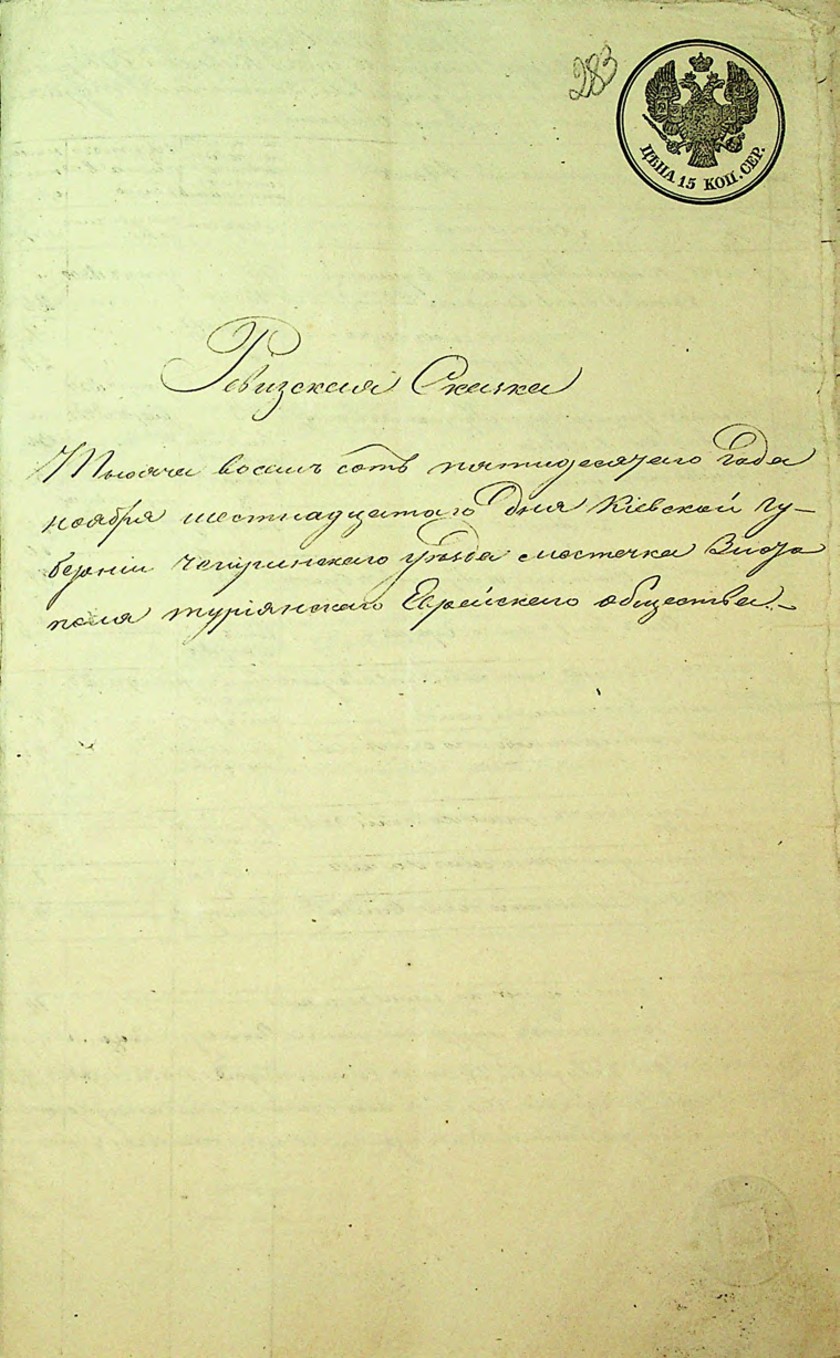 283
ЦѢНА 15 КОП. СЕР.
Ревизская Сказка
Тысяча восемь сотъ пятидесятаго года
ноября шестнадцатаго дня Кіевской гу-
берніи Чегиринскаго уѣзда местечка Злато
поля туріянскаго Еврейскаго общества.